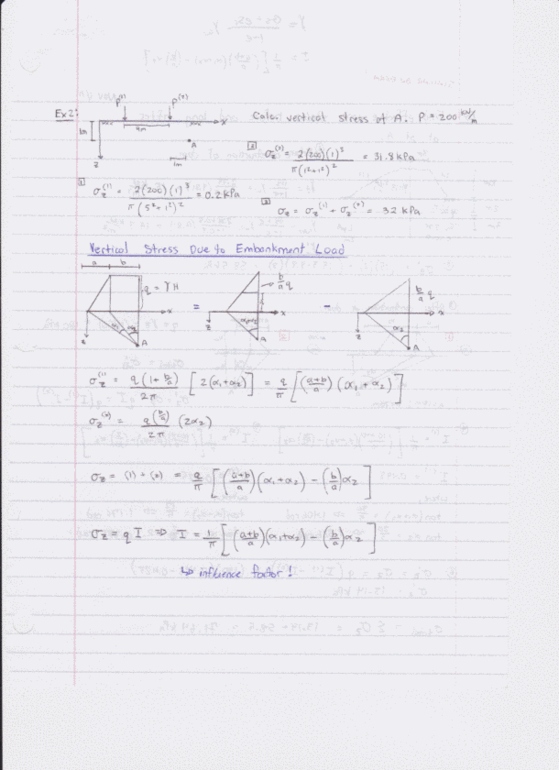 Ex2:
P⁽¹⁾ P⁽²⁾
x
4m
1m
A
z
1m
Calc. vertical stress at A. P = 200 kN/m
[2] σz⁽²⁾ = 2(200)(1)³ / π(1²+1²)² = 31.8 kPa
[1] σz⁽¹⁾ = 2(200)(1)³ / π(5²+1²)² = 0.2 kPa
[3] σz = σz⁽¹⁾ + σz⁽²⁾ = 32 kPa
Vertical Stress Due to Embankment Load
a b
q = γH
x
z
α₁ α₂
A
=
b/a q
q
x
z
α₁+α₂
A
-
b/a q
x
z
α₂
A
σz⁽¹⁾ = q(1+b/a) / 2π [2(α₁+α₂)] = q/π [((a+b)/a)(α₁+α₂)]
σz⁽²⁾ = q(b/a) / 2π (2α₂)
σz = (1) - (2) = q/π [((a+b)/a)(α₁+α₂) - (b/a)α₂]
σz = q I ⇒ I = 1/π [((a+b)/a)(α₁+α₂) - (b/a)α₂]
↳ influence factor!